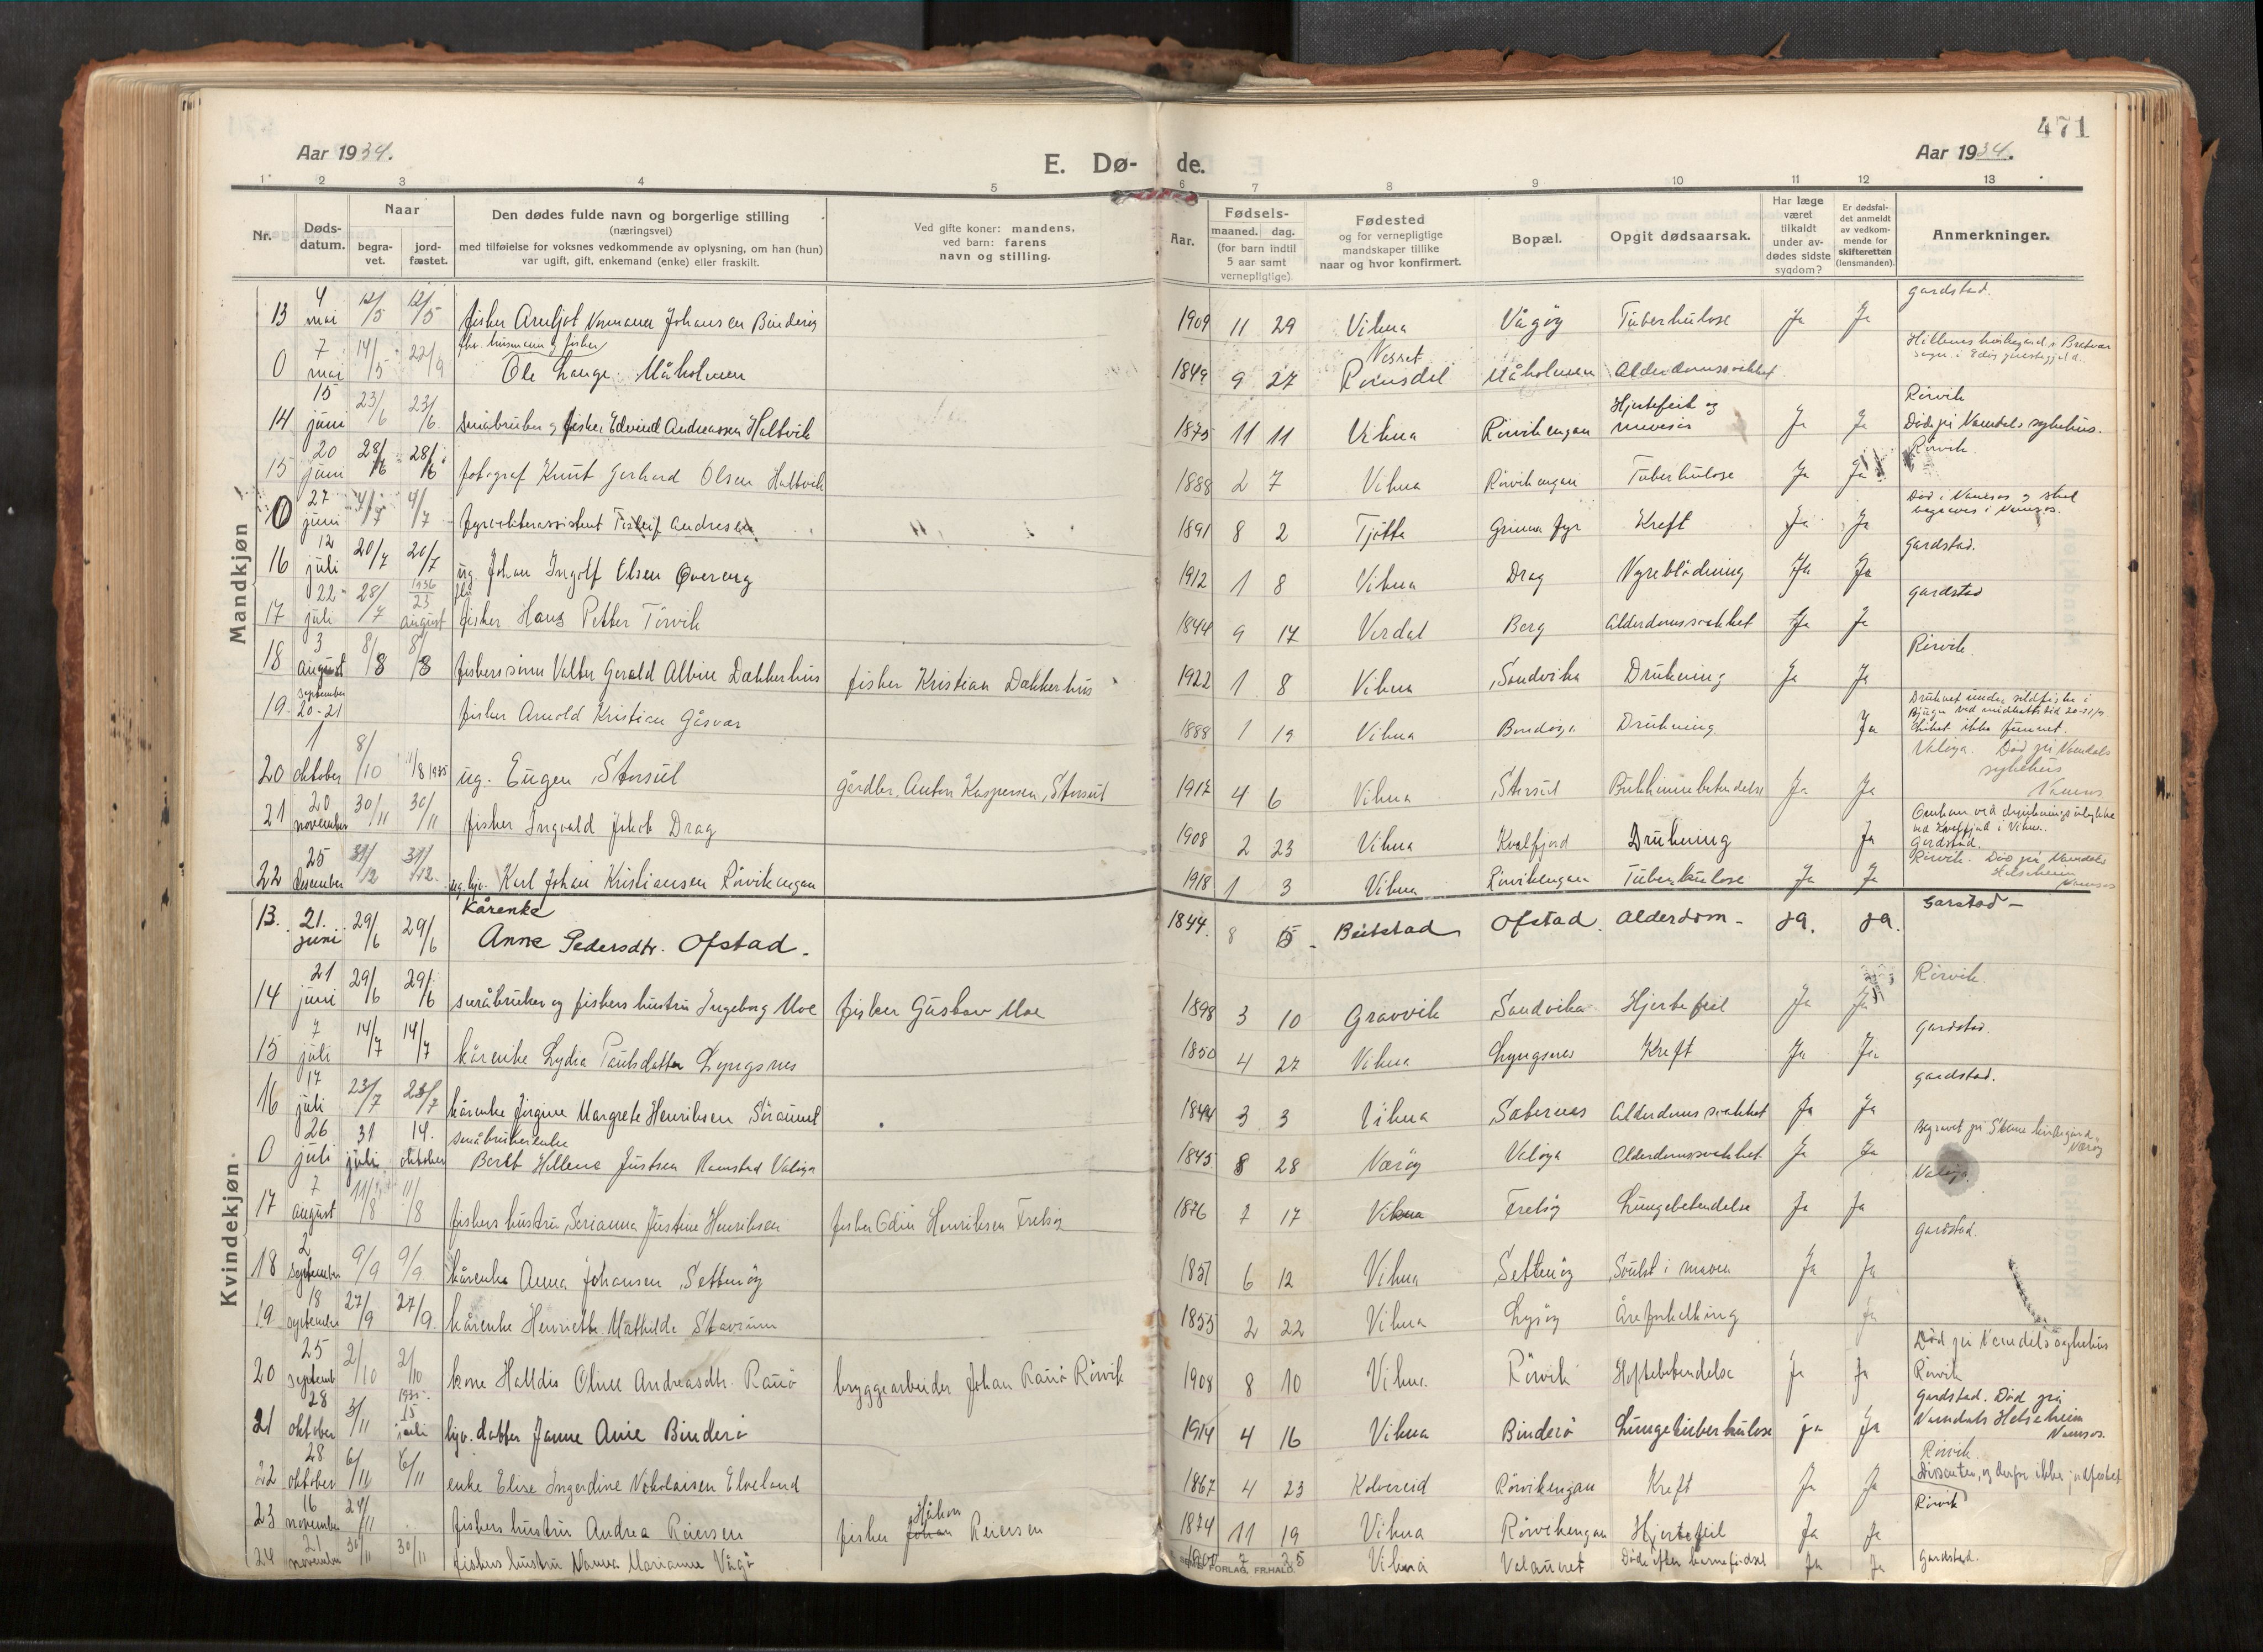 471
Aar 1934.
E. Dø- de.
Aar 1934.
1 2 3 4 5 6 7 8 9 10 11 12 13
Nr.
Døds-datum.
Naar
begra-vet.
jord-fæstet.
Den dødes fulde navn og borgerlige stilling
(næringsvei)
med tilføielse for voksnes vedkommende av oplysning, om han (hun)
var ugift, gift, enkemand (enke) eller fraskilt.
Ved gifte koner: mandens,
ved barn: farens
navn og stilling.
Aar.
Fødsels-
maaned. dag.
(for barn indtil
5 aar samt
vernepligtige).
Fødested
og for vernepligtige
mandskaper tillike
naar og hvor konfirmert.
Bopæl.
Opgit dødsaarsak.
Har læge
været
tilkaldt
under av-
dødes sidste
sygdom?
Er dødsfal-
det anmeldt
av vedkom-
mende for
skifteretten
(lensmanden).
Anmerkninger.
Mandkjøn
13 4 mai 12/5 12/5 fisker Johansen Binderöy 1909 11 29 Vikna Vågöy Tuberkulose Ja Ja Gardstad.
0 7 mai 14/5 22/9 fhv. husmann og fisker Ole Lange Måholmen 1849 9 27 Nesset Romsdal Måholmen Alderdomssvakhet
14 15 juni 23/6 23/6. småbruker og fisker Edvind Andreassen Haltvik 1875 11 11 Vikna Rörvikengan Hjertefeil og Ja Ja Rörvik Döde på Namdals sykehus.
15 20 juni 28/6 28/6 fotograf Knut Gerhard Olsen Haltvik 1888 2 7 Vikna Rörvikengan Tuberkulose Ja Ja Rörvik.
0 27 juni 4/7 4/7 Andresen 1891 8 2 Tjötta Grinna fyr Kreft Ja Ja Död i Namsos og skal begraves i Namsos.
16 12 juli 20/7 20/7 ug. Johan Ingolf Olsen 1912 1 8 Vikna Drag Ja Ja Gardstad.
17 22 juli 28/7 1936 23 august fisker Hans Petter Törvik 1844 9 17 Verdal Borg Alderdomssvakhet Ja Ja Gardstad
18 3 august 8/8 8/8 fiskers sönn Valter Gerald Albin Dakkerhus fisker Kristian Dakkerhus 1922 1 8 Vikna Sandvika Drukning Ja Ja Rörvik.
19 september 20-21 fisker Arnold Kristian Gåsvær 1888 1 19 Vikna Drukning Ja Druknet under sildfiske i Bjugn ved midnattstid 20-21/9. Liket ikke funnet.
20 1 oktober 8/10 11/8 1935 ug. Eugen Storsul gårdbr. Anton Kaspersen, Storsul 1917 4 6 Vikna Storsul Bukhinnebetendelse Ja Ja Valöya. Död på Namdals sykehus Namsos
21 20 november 30/11 30/11 fisker Ingvald Jakob Drag 1908 2 23 Vikna Kvalfjord Drukning Ja Omkom ved drukningsulykke ved Kvalfjord i Vikna. Gardstad.
22 25 desember 31/12 31/12. ug. hjv. Karl Johan Kristiansen Rörvikengan 1918 1 3 Vikna Rörvikengan Tuberkulose Ja Ja Rörvik. Död på Namdals Helseheim Namsos
Kvindekjøn
13. 21. juni 29/6 29/6 Kårenke Anne Pedersdtr. Ofstad. 1844. 8 15 Beitstad Ofstad. Alderdom - ja. ja. Garstad -
14 21 juni 29/6 29/6 småbruker og fiskers hustru Ingeborg Moe fisker Gustav Moe 1898 3 10 Gravvik Sandvika Hjertefeil Ja Ja Rörvik.
15 7 juli 14/7 14/7 kårenke Lydia Paulsdatter Lyngsnes 1850 4 27 Vikna Lyngsnes Kreft Ja Ja Gardstad.
16 17 juli 23/7 23/7 kårenke Jörgine Margrete Henriksen 1844 3 3 Vikna Saternes Alderdomssvakhet Ja Ja Gardstad.
0 26 juli 31 juli 14. oktober småbrukerenke Beret Hellene Justsen Ramstad Valöya 1845 8 28 Næröy Valöya Alderdomssvakhet Ja Ja Begravet på kirkegård. Næröy
17 7 august 11/8 11/8 fiskers hustru Serianna Justine Henriksen fisker Odin Henriksen Frelsöy 1876 7 17 Vikna Frelsöy Lungebetendelse Ja Ja Valöya.
18 2 september 9/9 9/9 kårenke Anna Johansen Settenöy 1851 6 12 Vikna Settenöy Svulst i maven Ja Ja Gardstad.
19 18 september 27/9 27/9. kårenke Henriette Mathilde Stavrum 1855 2 22 Vikna Lysöy Åreforkalkning Ja
20 25 septemb 2/10 2/10 kone Halldis Oline Andreasdtr. Ramö bryggearbeider Johan Ramö Rörvik 1908 8 10 Vikna. Rörvik Hoftebetendelse Ja Ja Död på Namdals sykehus Rörvik
21 28 oktober 3/11 1935. 15 juli hjv. datter Janne Anie Binderö 1914 4 16 Vikna Binderö Lungetuberkulose ja Ja Gardstad. Död på Namdals Helseheim Namsos.
22 28 oktober 6/11 6/11 enke Elise Ingerdine Nikolaisen Elveland 1867 4 23 Kolvereid Rörvikengan Kreft Ja Ja Rörvik. Dissenter, og derfor ikke jordfestet
23 16 november 24/11 fiskers hustru Andrea Reiersen fisker Håkon Reiersen 1874 11 19 Vikna Rörvikengan Hjertefeil Ja Ja Rörvik
24 21 november 30/11 30/11 fiskers hustru Nanna Marianne Vågö 1900 7 25 Vikna Valaunet Döde efter barnefödsel Ja Ja Gardstad.
FORLAG, FR.HALD.